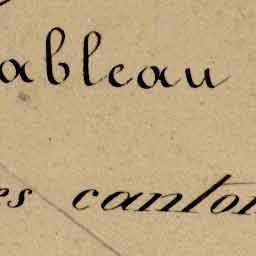 ableau
es canton